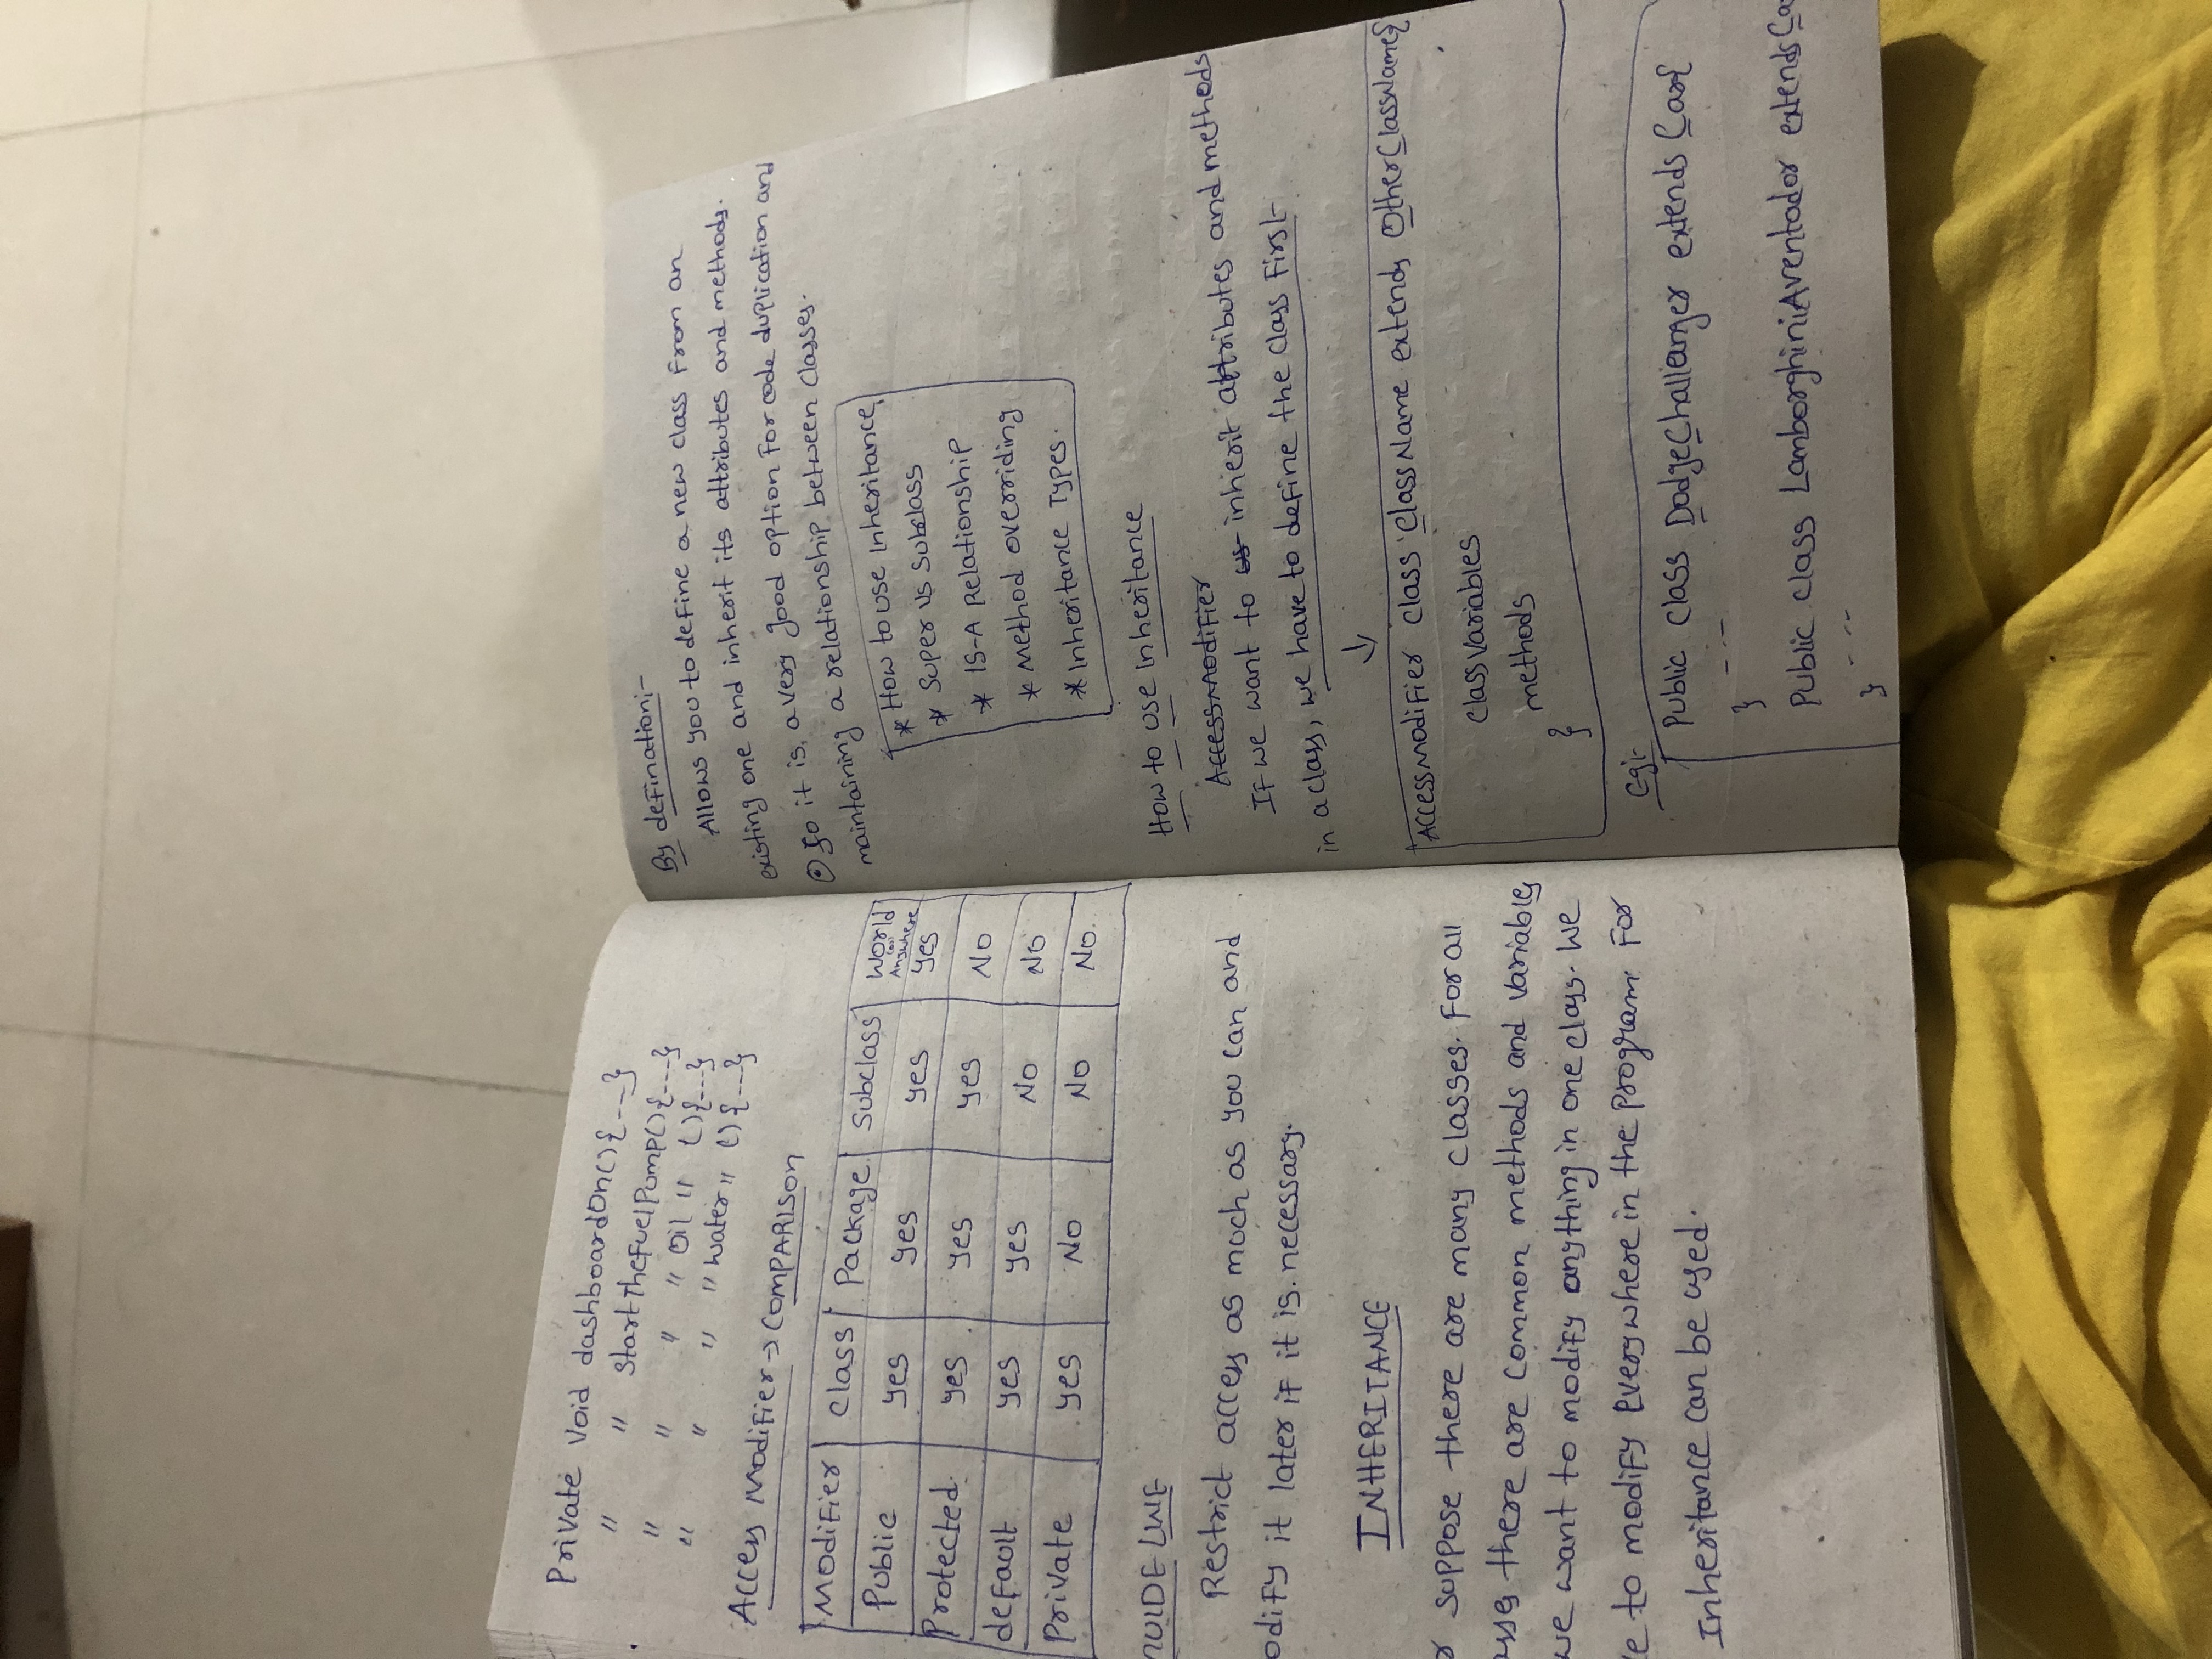 Private void dashboardOn(){---}
" " StartTheFuelPump(){---}
" " " " Oil " (){---}
" " " " water " (){---}
Access Modifier → COMPARISON
Modifier Class Package Subclass World (or) Anywhere
Public yes yes yes yes
Protected. yes yes yes No
default yes yes No No
Private yes No No No.
GUIDELINE
Restrict access as much as you can and
odify it later if it is. necessary.
INHERITANCE
r suppose there are many classes. For all
asses there are common methods and variables
we want to modify anything in one class. We
ve to modify everywhere in the program. For
Inheritance can be used.
By defination:-
Allows you to define a new class from an
existing one and inherit its attributes and methods.
So it is, a very good option for code duplication and
maintaining a relationship between classes.
* How to use Inheritance
* Super vs Subclass
* IS-A Relationship
* Method overriding
* Inheritance Types.
How to use Inheritance
AccessModifier
If we want to us inherit attributes and methods
in a class, we have to define the class First
↓
AccessModifier class ClassName extends OtherClassName{
classVariables
methods
}
Eg:-
Public class DodgeChallenger extends Car{
-.-
}
Public class LamborghiniAventador extends Ca
- --
}